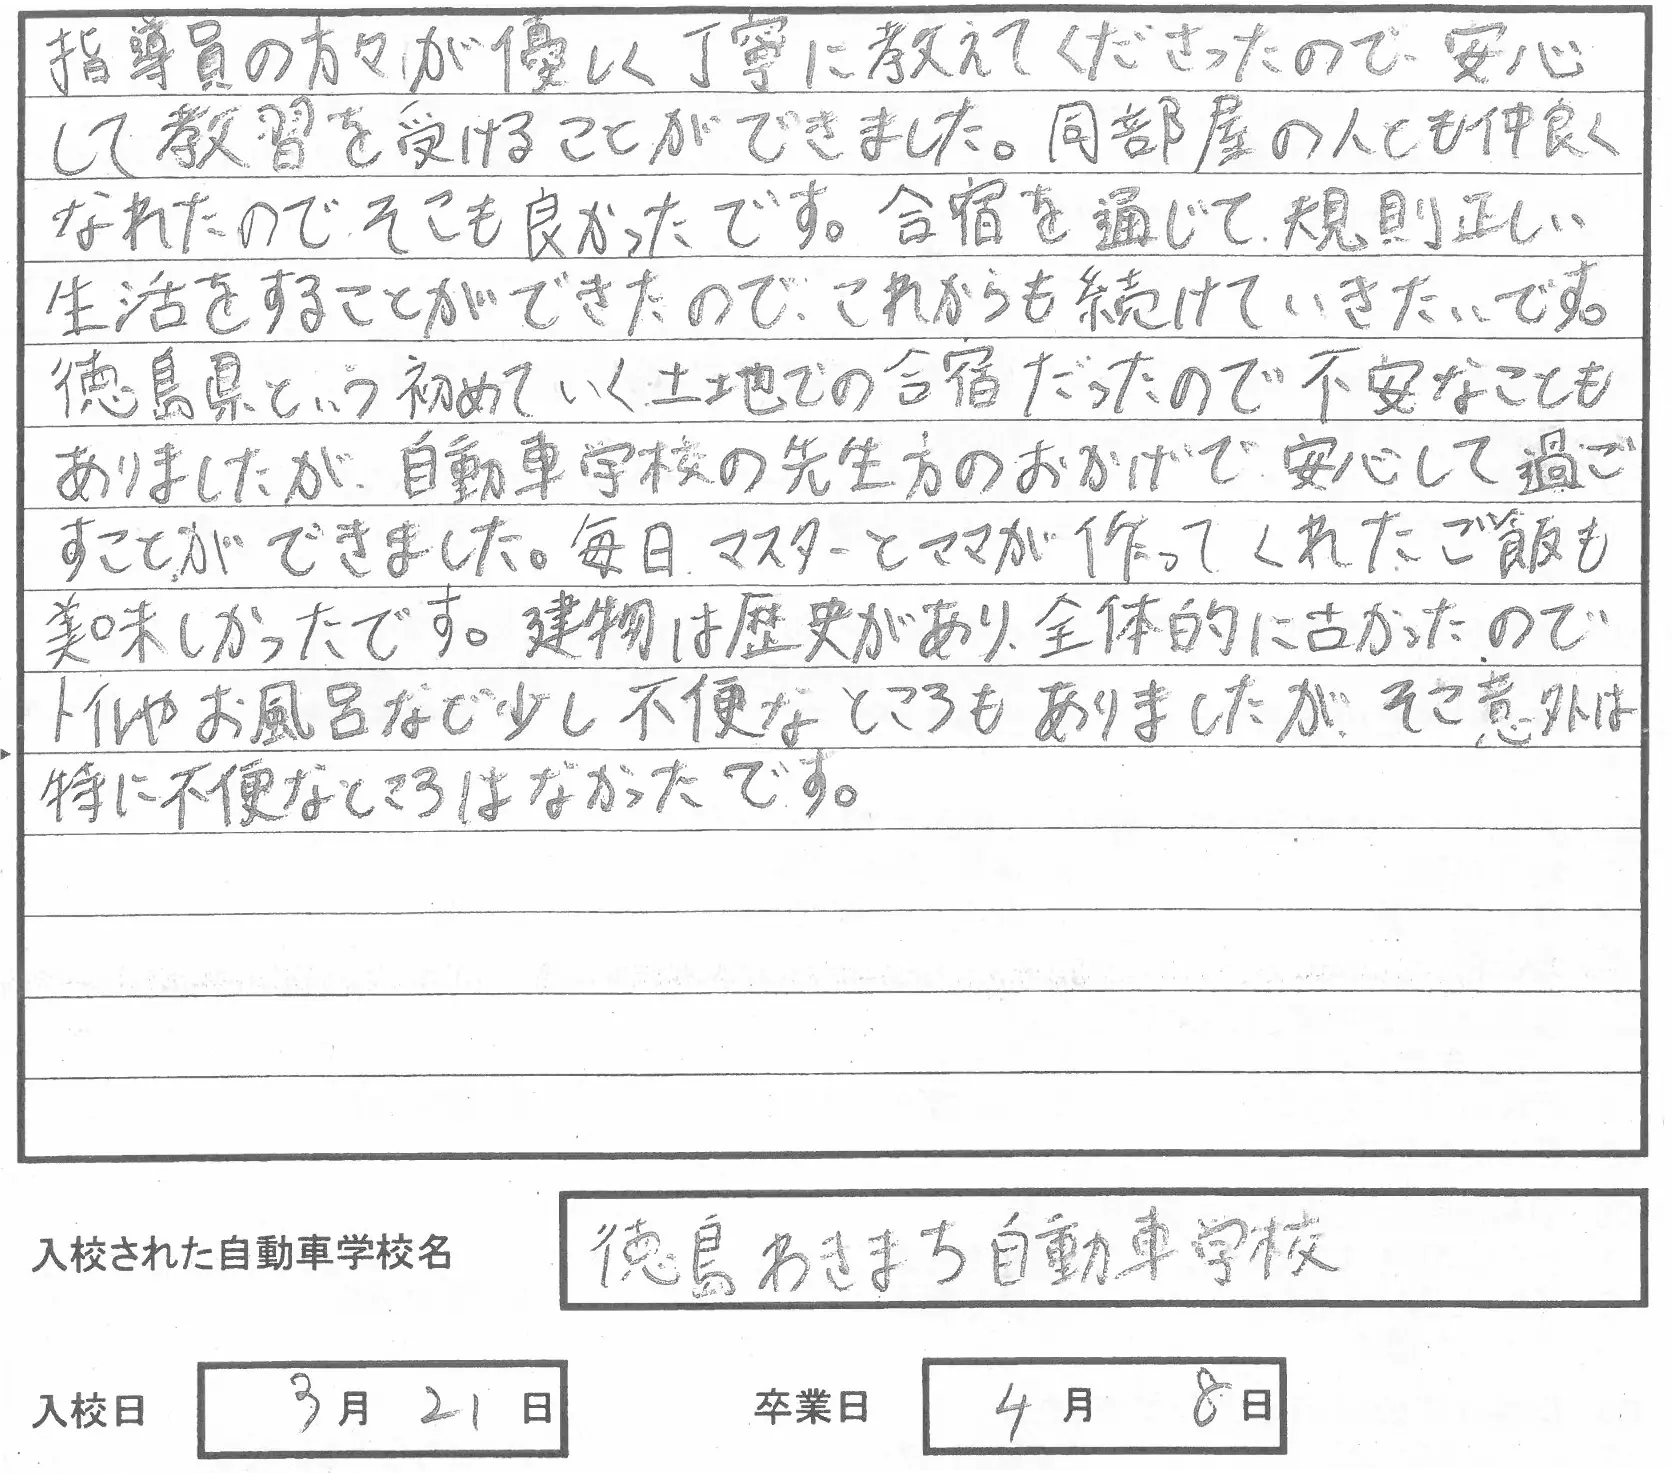 指導員の方々が優しく丁寧に教えてくださったので、安心
して教習を受けることができました。同部屋の人とも仲良く
なれたのでそこも良かったです。合宿を通じて、規則正しい
生活をすることができたので、これからも続けていきたいです。
徳島県という初めていく土地での合宿だったので不安なことも
ありましたが、自動車学校の先生方のおかげで、安心して過ご
すことができました。毎日、マスターとママが作ってくれたご飯も
美味しかったです。建物は歴史があり、全体的に古かったので
トイレやお風呂など少し不便なところもありましたが、そこ意外は
特に不便なところはなかったです。
入校された自動車学校名 徳島わきまち自動車学校
入校日 3月21日 卒業日 4月8日